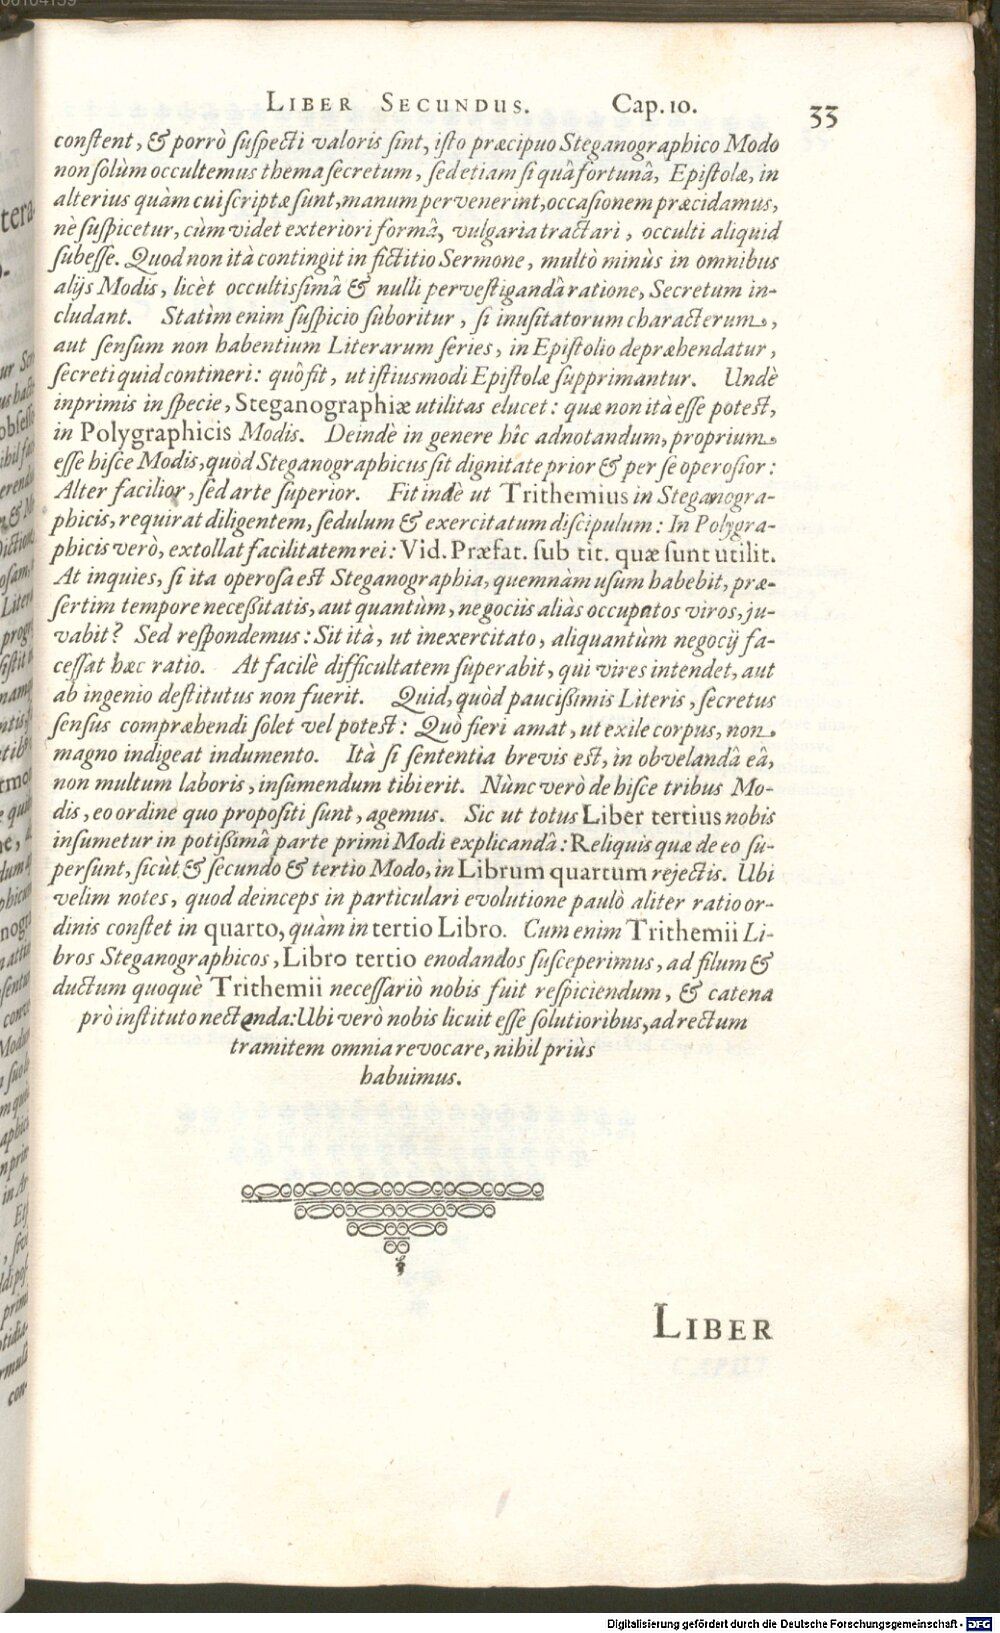 LIBER SECUNDUS. Cap. 10. 33
constent, & porrò suspecti valoris sint, isto præcipuo Steganographico Modo
non solùm occultemus thema secretum, sed etiam si quâ fortunâ, Epistolæ, in
alterius quàm cui scriptæ sunt, manum pervenerint, occasionem præcidamus,
nè suspicetur, cùm videt exteriori formâ, vulgaria tractari, occulti aliquid
subesse. Quod non ità contingit in fictitio Sermone, multò minùs in omnibus
alijs Modis, licèt occultissimâ & nulli pervestigandâ ratione, Secretum in-
cludant. Statìm enim suspicio suboritur, si inusitatorum characterum,
aut sensum non habentium Literarum series, in Epistolio depræhendatur,
secreti quid contineri: quô fit, ut istiusmodi Epistolæ supprimantur. Undè
inprimis in specie, Steganographiæ utilitas elucet: quæ non ità esse potest,
in Polygraphicis Modis. Deindè in genere hîc adnotandum, proprium
esse hisce Modis, quòd Steganographicus sit dignitate prior & per se operosior:
Alter facilior, sed arte superior. Fit indè ut Trithemius in Steganogra-
phicis, requirat diligentem, sedulum & exercitatum discipulum: In Polygra-
phicis verò, extollat facilitatem rei: Vid. Præfat. sub tit. quæ sunt utilit.
At inquies, si ita operosa est Steganographia, quemnàm usum habebit, præ-
sertim tempore necessitatis, aut quantùm, negociis aliàs occupatos viros, ju-
vabit? Sed respondemus: Sit ità, ut inexercitato, aliquantùm negocij fa-
cessat hæc ratio. At facilè difficultatem superabit, qui vires intendet, aut
ab ingenio destitutus non fuerit. Quid, quòd paucissimis Literis, secretus
sensus compræhendi solet vel potest: Quò fieri amat, ut exile corpus, non
magno indigeat indumento. Ità si sententia brevis est, in obvelandâ eâ,
non multum laboris, insumendum tibi erit. Nùnc verò de hisce tribus Mo-
dis, eo ordine quo propositi sunt, agemus. Sic ut totus Liber tertius nobis
insumetur in potissimâ parte primi Modi explicandâ: Reliquis quæ de eo su-
persunt, sicùt & secundo & tertio Modo, in Librum quartum rejectis. Ubi
velim notes, quod deinceps in particulari evolutione paulò aliter ratio or-
dinis constet in quarto, quàm in tertio Libro. Cum enim Trithemii Li-
bros Steganographicos, Libro tertio enodandos susceperimus, ad filum &
ductum quoquè Trithemii necessariò nobis fuit respiciendum, & catena
prò instituto nectenda: Ubi verò nobis licuit esse solutioribus, ad rectum
tramitem omnia revocare, nihil priùs
habuimus.
LIBER
Digitalisierung gefördert durch die Deutsche Forschungsgemeinschaft - DFG